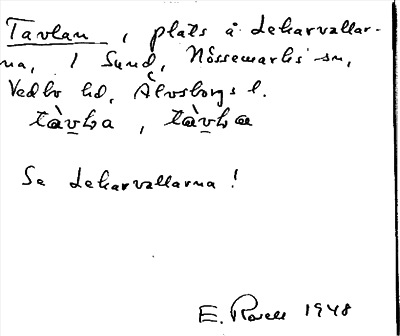 Tavlan, plats å Lekarvallar-
na, 1 Sund, Nössemarks sn,
Vedbo hd, Älvsborgs l.
tàvḷa, tàvḷa
Se Lekarvallarna!
E. Rosell 1948